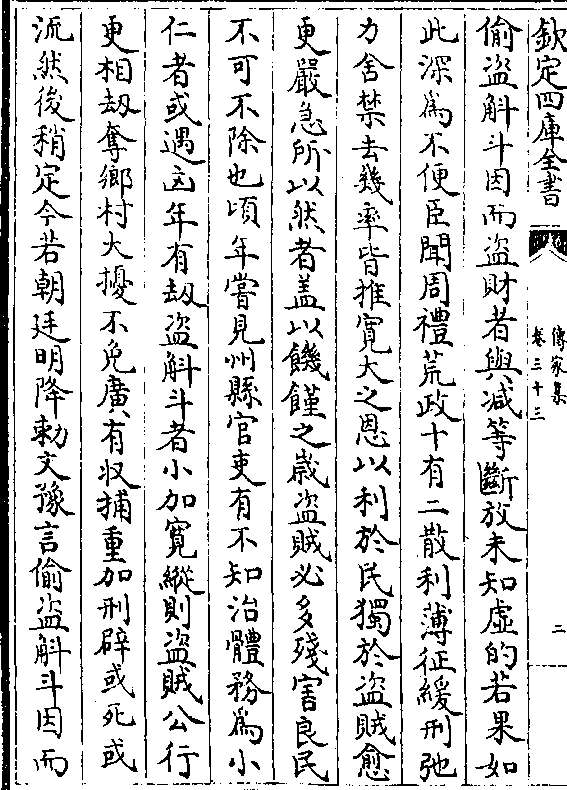 欽定四庫全書
傳家集
卷三十三
二
偷盜斛斗因而盜財者與减等斷放未知虛的若果如
此深為不便臣聞周禮荒政十有二散利薄征緩刑弛
力舍禁去幾率皆推寬大之恩以利於民獨於盜賊愈
更嚴急所以然者盖以饑饉之歲盜賊必多殘害良民
不可不除也頃年嘗見州縣官吏有不知治體務為小
仁者或遇凶年有刼盜斛斗者小加寬縱則盜賊公行
更相刼奪鄉村大擾不免廣有収捕重加刑辟或死或
流然後稍定今若朝廷明降勅文豫言偷盜斛斗因而